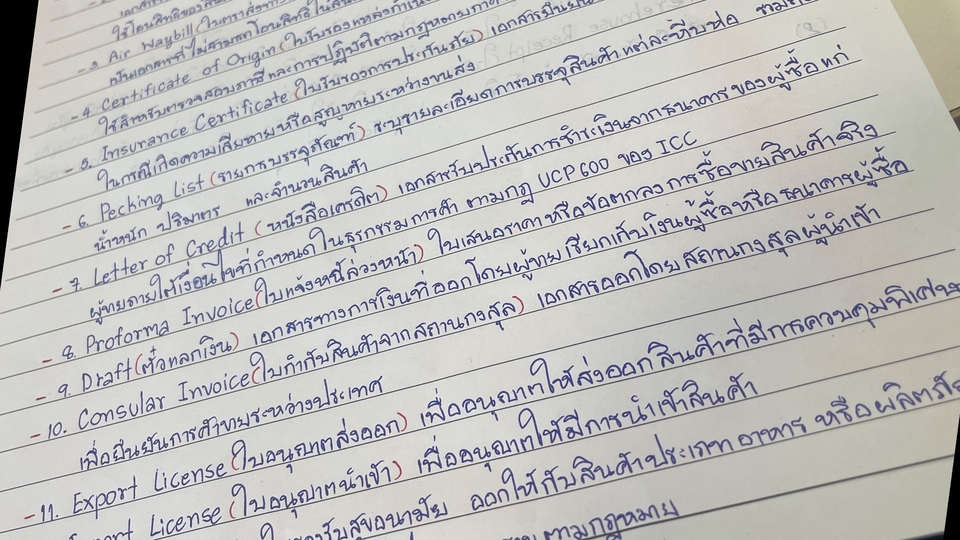 ใช้โอนสิทธิของสิน
- 3. Air Waybill (ใบตราส่งทาง
เป็นเอกสารที่ไม่สามารถโอนสิทธิ์ในสิน
- 4. Certificate of Origin (ใบรับรองแหล่งกำเนิ
ใช้สำหรับตรวจสอบภาษีและการปฏิบัติตามกฎหมายการค้
- 5. Insurance Certificate (ใบรับรองการประกันภัย) เอกสารยืนยัน
ในกรณีเกิดความเสียหายหรือสูญหายระหว่างขนส่ง
- 6. Pecking List (รายการบรรจุภัณฑ์) ระบุรายละเอียดการบรรจุสินค้าแต่ละหีบห่อ
น้ำหนัก ปริมาตร และจำนวนสินค้า
- 7. Letter of Credit (หนังสือเครดิต) เอกสารรับประกันการชำระเงินจากธนาคารของผู้ซื้อแก่
ผู้ขายภายใต้เงื่อนไขที่กำหนดในธุรกรรมการค้า ตามกฎ UCP600 ของ ICC
- 8. Proforma Invoice (ใบแจ้งหนี้ล่วงหน้า) ใบเสนอราคาหรือข้อตกลงการซื้อขายสินค้าจริง
- 9. Draft (ตั๋วแลกเงิน) เอกสารทางการเงินที่ออกโดยผู้ขายเรียกเก็บเงินผู้ซื้อหรือธนาคารผู้ซื้อ
- 10. Consular Invoice (ใบกำกับสินค้าจากสถานกงสุล) เอกสารออกโดยสถานกงสุลผู้นำเข้า
เพื่อยืนยันการค้าขายระหว่างประเทศ
- 11. Export License (ใบอนุญาตส่งออก) เพื่ออนุญาตให้ส่งออกสินค้าที่มีการควบคุมพิเศษ
License (ใบอนุญาตนำเข้า) เพื่ออนุญาตให้มีการนำเข้าสินค้า
รับสุขอนามัย ออกให้กับสินค้าประเภทอาหาร หรือผลิตภั
ตามกฎหมาย